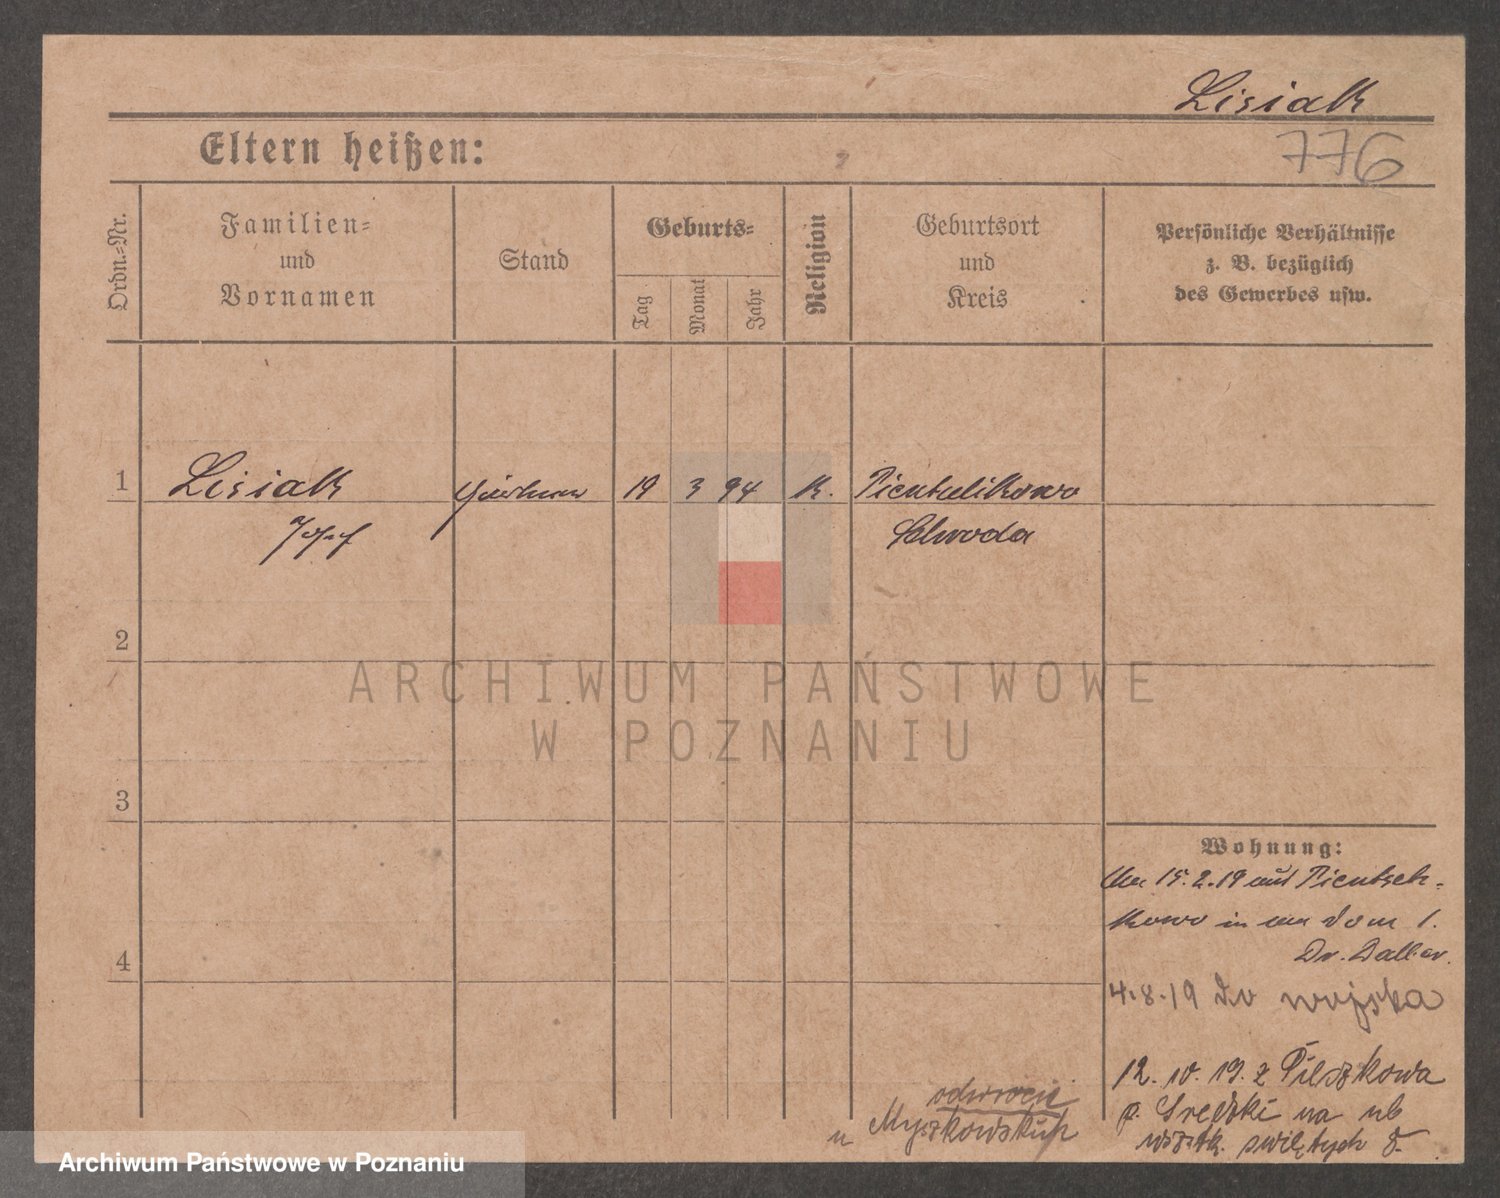 Lisiak
776
Eltern heißen:
Ordn.=Nr.
Familien=
und
Vornamen
Stand
Geburts=
Tag
Monat
Jahr
Religion
Geburtsort
und
Kreis
Persönliche Verhältnisse
z. B. bezüglich
des Gewerbes usw.
1 Lisiak 19 3 94 k.
Josef Schroda
2
ARCHIWUM PAŃSTWOWE
W POZNANIU
3
Wohnung:
15.2.19 aus
in dom 1.
4
4.8.19 do wojska
12. 19. z
p. Średzki na ul
wszystk. świętych 8.
odwrocie
u
Archiwum Państwowe w Poznaniu